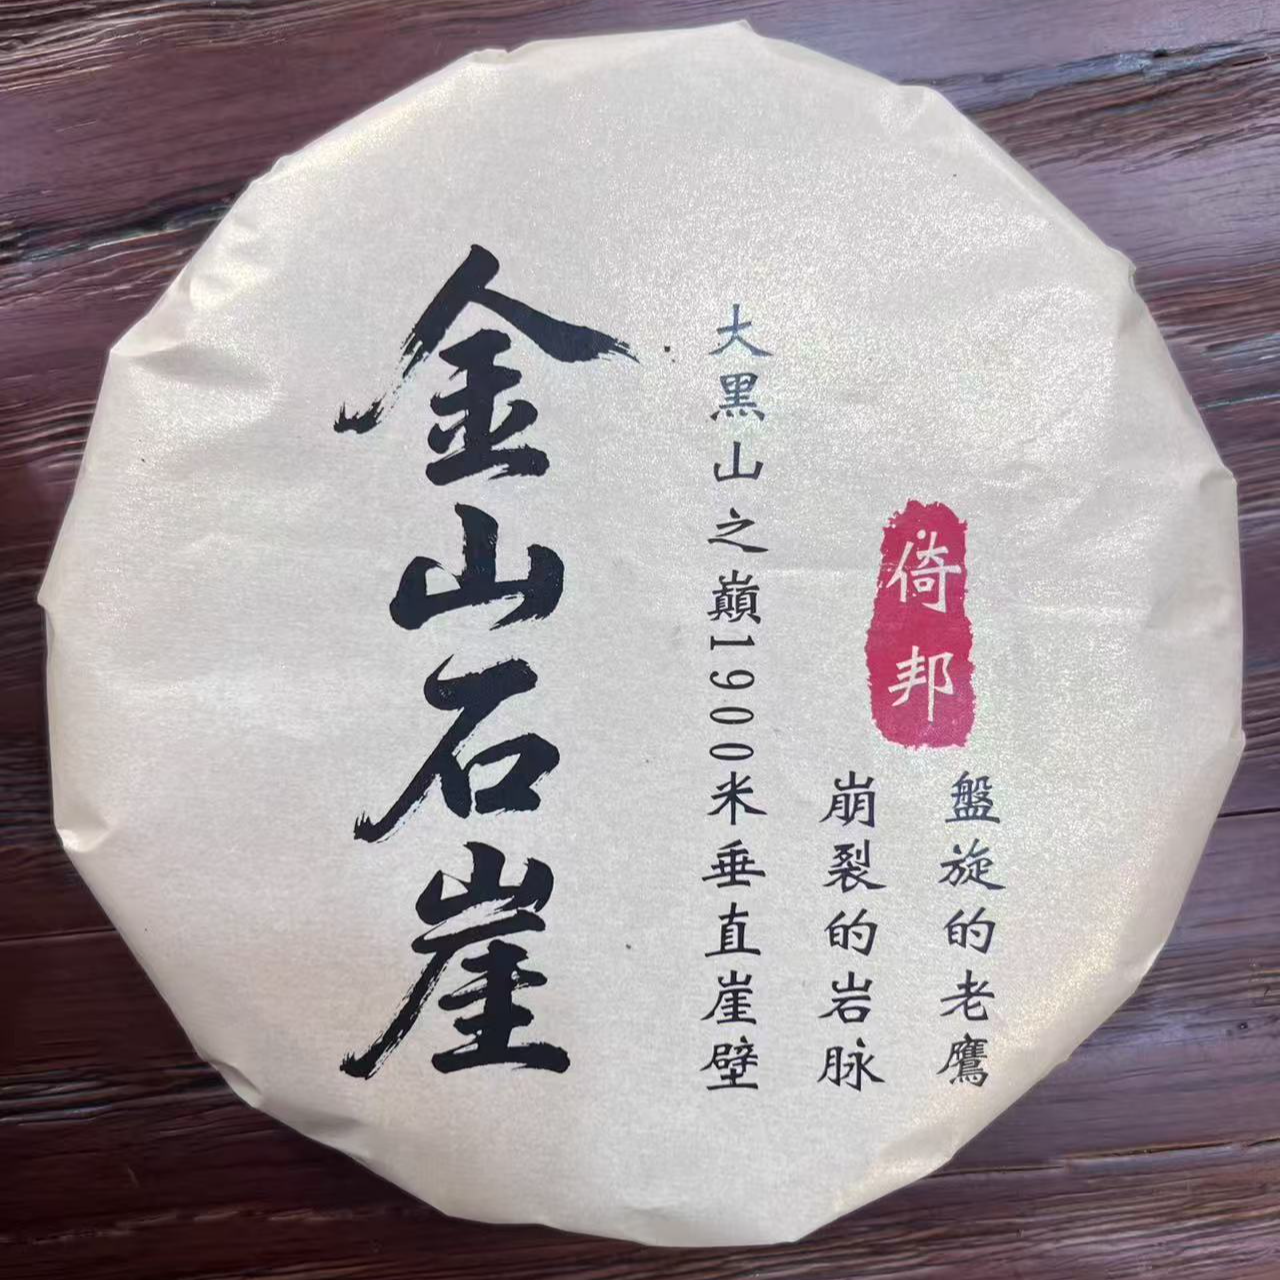 金山石崖
大黑山之巔1900米垂直崖壁
崩裂的岩脉
盤旋的老鷹
倚邦